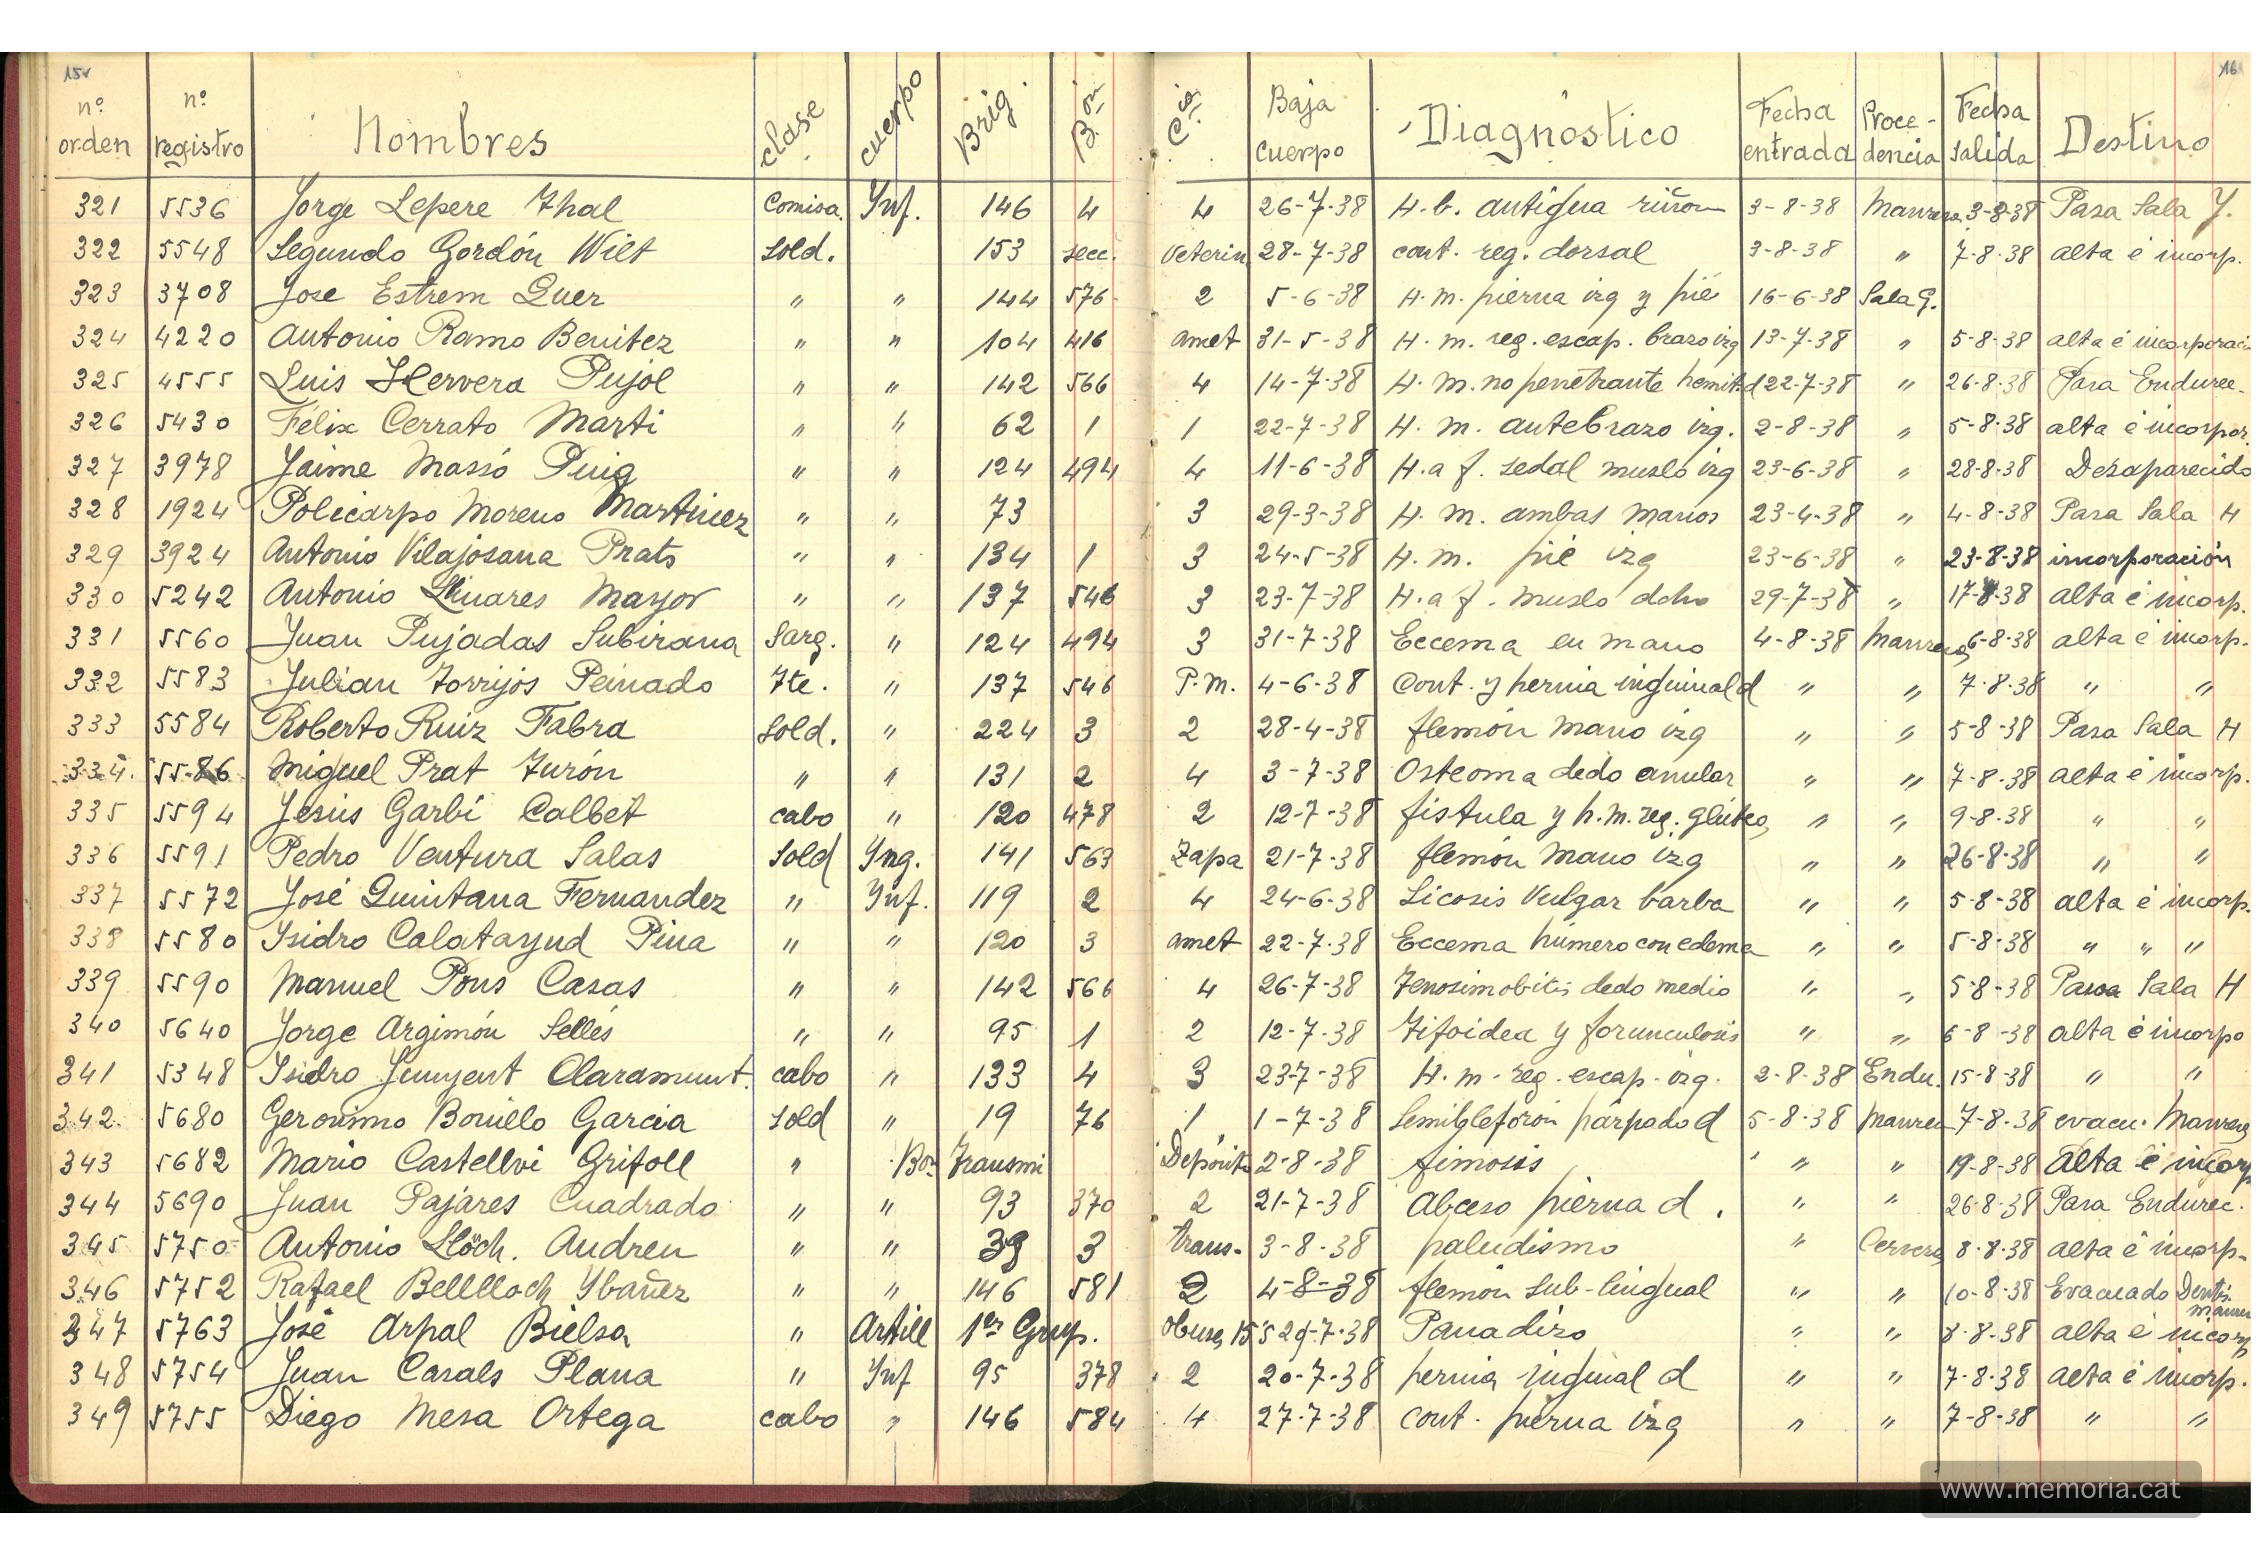 15v
16
nº orden nº registro Nombres clase cuerpo Brig. B.on C.ia Baja cuerpo Diagnostico Fecha entrada Proce-dencia Fecha salida Destino
321 5536 Jorge Lepere Thal Comisa. Inf. 146 4 4 26-7-38 H.b. antigua riñon 3-8-38 Manresa 3-8-38 Pasa Sala Y.
322 5548 Segundo Gordón Wilt Sold. 153 secc. Veterin 28-7-38 cont. reg. dorsal 3-8-38 " 7-8-38 alta é incorp.
323 3708 Jose Estrem Quer " " 144 576 2 5-6-38 H.m. pierna izq y pié 16-6-38 Sala G.
324 4220 Antonio Ramo Benitez " " 104 416 amet 31-5-38 H.m. reg. escap. brazo izq 13-7-38 " 5-8-38 alta é incorporaci
325 4555 Luis Hervera Pujol " " 142 566 4 14-7-38 H.m. no penetrante hemit.d 22-7-38 " 26-8-38 Para Endurec.
326 5430 Félix Cerrato Marti " " 62 1 1 22-7-38 H.m. antebrazo izq. 2-8-38 " 5-8-38 alta é incorpor.
327 3978 Jaime Massó Puig " " 124 494 4 11-6-38 H.a f. sedal muslo izq 23-6-38 " 28-8-38 Desaparecido
328 1924 Policarpo Moreno Martinez " " 73 3 29-3-38 H.m. ambas manos 23-4-38 " 4-8-38 Pasa Sala H
329 3924 Antonio Vilajosana Prats " " 134 1 3 24-5-38 H.m. pié izq 23-6-38 " 23-8-38 incorporación
330 5242 Antonio Llinares Mayor " " 137 546 3 23-7-38 H.a f. muslo dcho 29-7-38 " 17-8-38 alta é incorp.
331 5560 Juan Pujadas Subirana Sarg. " 124 494 3 31-7-38 Eccema en mano 4-8-38 Manresa 6-8-38 alta é incorp.
332 5583 Julian Torrijos Peinado Tte. " 137 546 P.M. 4-6-38 Cont. y hernia inguinal d " " 7-8-38 " "
333 5584 Roberto Ruiz Fabra Sold. " 224 3 2 28-4-38 flemón mano izq " " 5-8-38 Pasa Sala H
334. 5586 Miguel Prat Turón " " 131 2 4 3-7-38 Osteoma dedo anular " " 7-8-38 alta é incorp.
335 5594 Jesús Garbi Calbet cabo " 120 478 2 12-7-38 fistula y h.m. reg. glútea " " 9-8-38 " "
336 5591 Pedro Ventura Salas Sold Ing. 141 563 Zapa 21-7-38 flemón mano izq " " 26-8-38 " "
337 5572 José Quintana Fernandez " Inf. 119 2 4 24-6-38 Sicosis Vulgar barba " " 5-8-38 alta é incorp.
338 5580 Isidro Calatayud Pina " " 120 3 amet 22-7-38 Eccema húmero con edema " " 5-8-38 " " "
339 5590 Manuel Pons Casas " " 142 566 4 26-7-38 Tenosimobitis dedo medio " " 5-8-38 Pasa Sala H
340 5640 Jorge Argimón Sellés " " 95 1 2 12-7-38 Tifoidea y forunculosis " " 6-8-38 alta é incorpo
341 5348 Isidro Junyent Claramunt. cabo " 133 4 3 23-7-38 H.m. reg. escap. izq. 2-8-38 Endu. 15-8-38 " "
342. 5680 Geronimo Bonillo Garcia sold " 19 76 1 1-7-38 Semiblefaron párpado d 5-8-38 Manresa 7-8-38 evacu. Manresa
343 5682 Mario Castellvi Grifoll " Bon Transmi Depósito 2-8-38 fimosis " " 19-8-38 Alta é incorp
344 5690 Juan Pajares Cuadrado " " 93 370 2 21-7-38 Abceso pierna d. " " 26-8-38 Para Endurec.
345 5750 Antonio Llöch. Andreu " " 39 3 trans. 3-8-38 paludismo " Cervera 8-8-38 alta é incorp.
346 5752 Rafael Bellloch Ybañez " " 146 581 2 4-8-38 flemón sub-lingual " " 10-8-38 Evacuado Dentis. Manre
347 5763 José Arpal Bielsa " Artill 1er Grup. Obuses 155 29-7-38 Panadizo " " 8-8-38 alta é incorp
348 5754 Juan Casals Plana " Inf 95 378 2 20-7-38 hernia inguial d " " 7-8-38 alta é incorp.
349 5755 Diego Mesa Ortega cabo " 146 584 4 27-7-38 cont. pierna izq " " 7-8-38 " "
www.memoria.cat